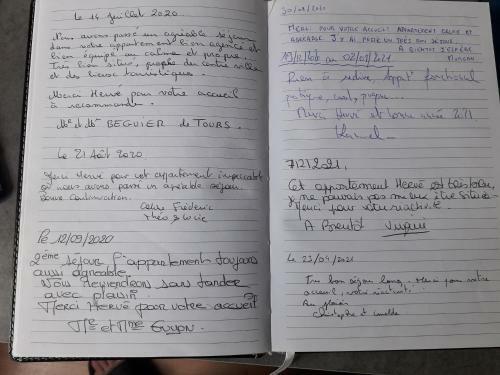 Le 14 juillet 2020
Nous avons passé un agréable séjour
dans votre appartement bien agencé et
bien équipé, au calme et propre.
Très bon séjour, proche du centre ville
et des lieux touristiques.
Merci Hervé pour votre accueil
à recommander.
Mr et Me BEGUIER de TOURS.
Le 21 Août 2020
Merci Hervé pour cet appartement impeccable
où nous avons passé un agréable séjour.
Bonne continuation.
Frédéric
Théo & Lucie
Le 12/09/2020
2ème séjour l'appartement toujours
aussi agréable.
Nous reviendrons sans tarder
avec plaisir.
Merci Hervé pour votre accueil
Mr et Mme Guyon.
MERCI POUR VOTRE ACCUEIL. APPARTEMENT CALME ET
AGREABLE. J'Y AI PASSE UN TRES BON SEJOUR.
A BIENTOT J'ESPERE
MORGAN
au 02/01/2021
Rien à redire, Appt fonctionnel
pratique, cosi, propre...
Merci Hervé et bonne année 2021.
7/2/2021.
Cet appartement Hervé est très bien,
je ne pouvais pas mieux être située
Merci pour votre réactivité.
A Bientôt
Le 23/04/2021
Très bon séjour Merci pour votre
accueil,
Au plaisir
Christophe et